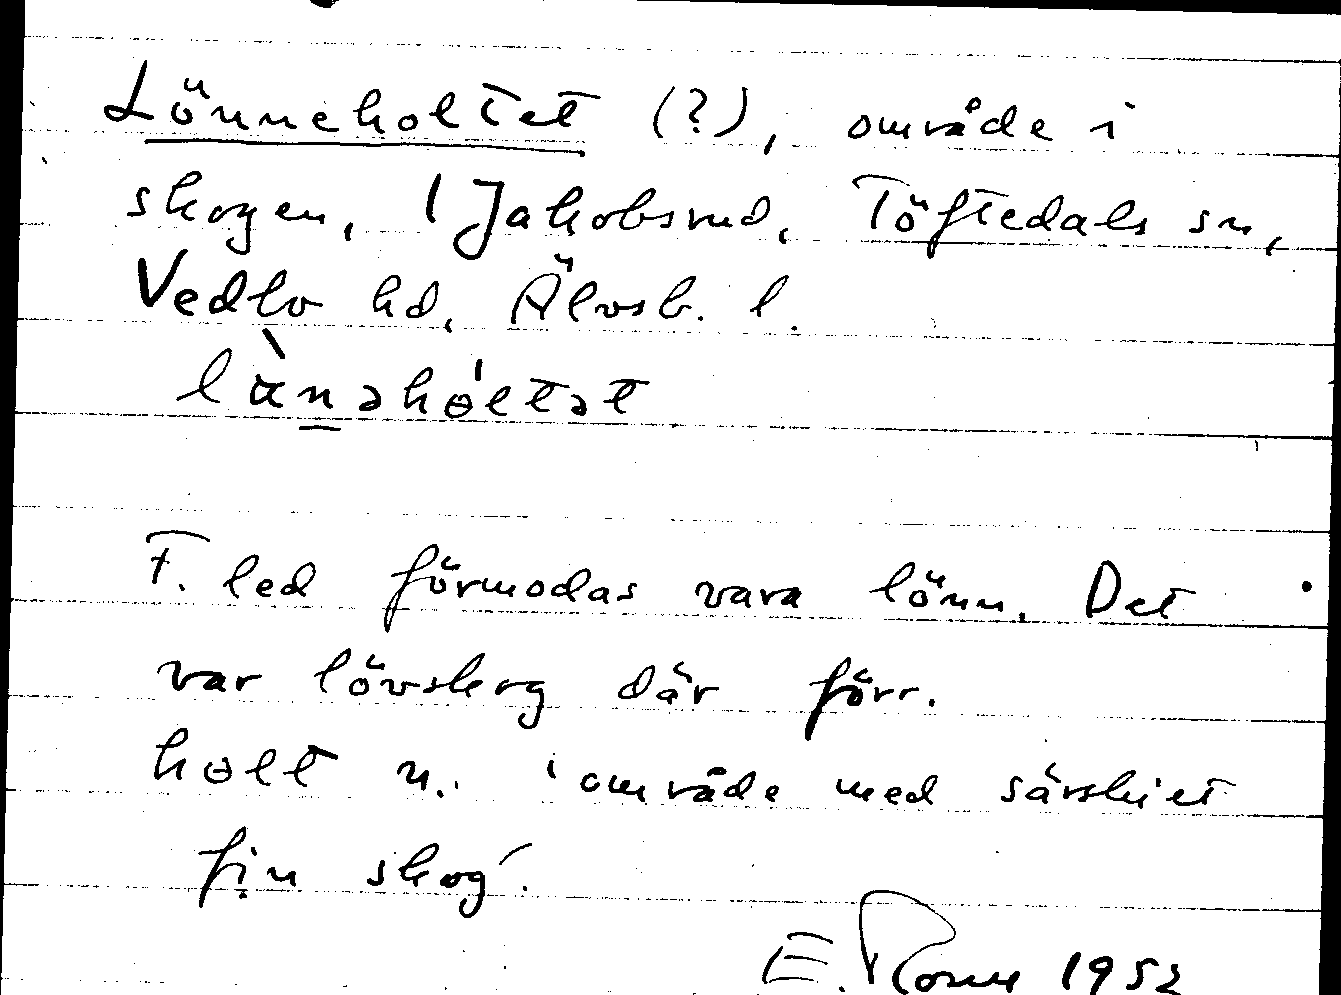 Lönneholtet (?), område i
skogen, Jakobsrud, Töftedals sn,
Vedbo hd, Älvsb. l.
lὰnəhóltət
F. led förmodas vara lönn. Det
var lövskog där förr.
holt n. 'område med särskilt
fin skog'.
E. 1952